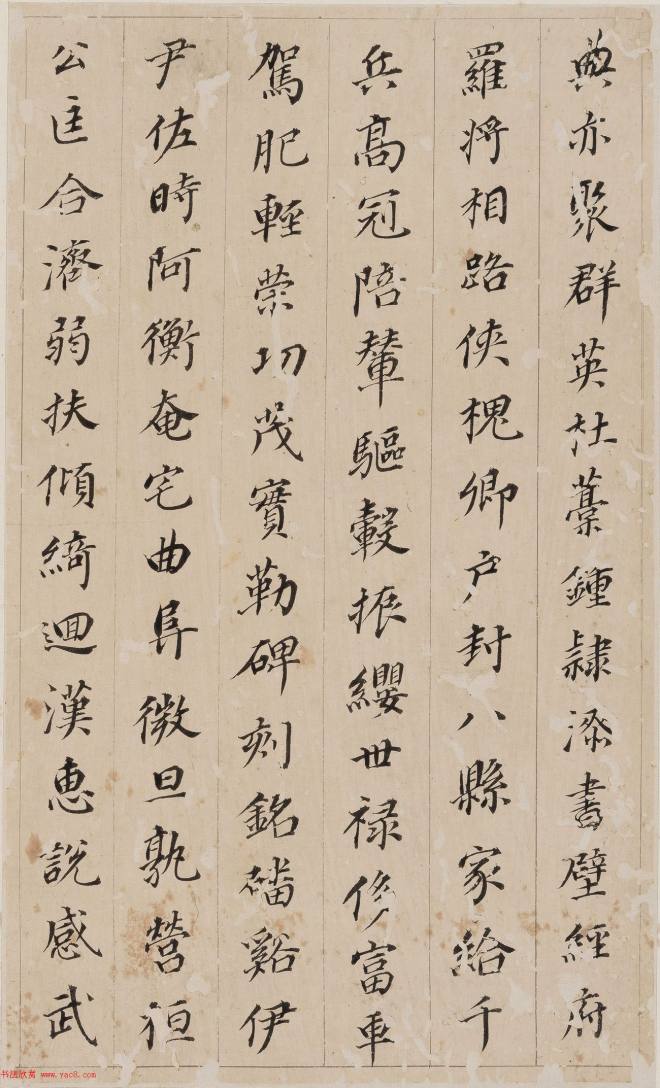 典亦聚群英杜藁鍾隸漆書壁經府
羅將相路俠槐卿户封八縣家給千
兵高冠陪輦驅轂振纓世禄侈富車
駕肥輕策功茂實勒碑刻銘磻谿伊
尹佐時阿衡奄宅曲阜微旦孰營桓
公匡合濟弱扶傾綺迴漢惠說感武
书法欣赏 www.yac8.com